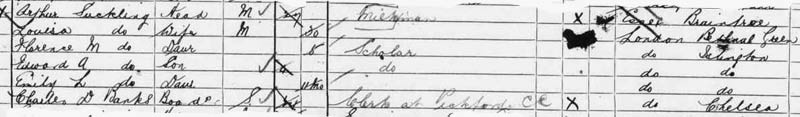 Arthur Suckling Head M Milkman x Essex Braintree
Louisa do Wife M 30 London Bethnal Green
Florence M do Daur 8 Scholar do Islington
Edward A do Son do do do
Emily L do Daur 11 mo do do
Charles D Banks Boarder S Clerk at Pickfords CC x do Chelsea